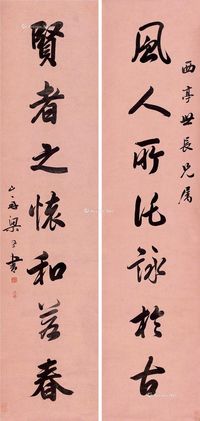 西亭世長兄屬
風人所託詠於古
賢者之懷和若春
山舟梁同書